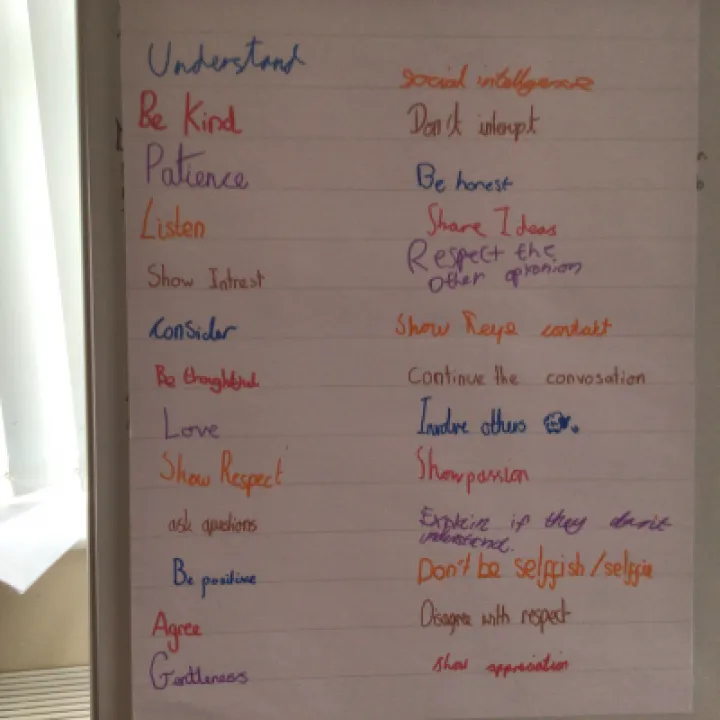 Understand
Be Kind
Patience
Listen
Show Intrest
Consider
Be thoughtful
Love
Show Respect
ask questions
Be positive
Agree
Gentleness
Social intelligence
Don't
Be honest
Share Ideas
Respect the
other opronion
Show eye contakt
Continue the convosation
Involve others
Show passion
Explain if they don't
understand.
Don't be selfish/selfie
Disagree with respect
Show appreciation